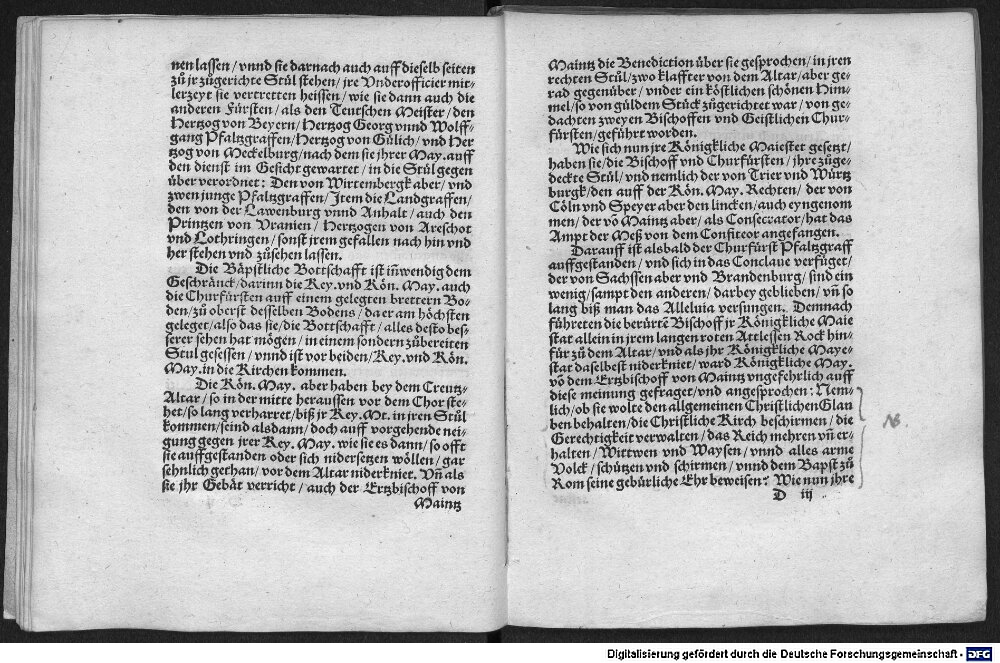 nen lassen / vnnd sie darnach auch auff dieselb seiten
zů jr zůgerichte Stůl stehen / jre Vnderofficier mit-
lerzeyt sie vertretten heissen / wie sie dann auch die
anderen Fürsten / als den Teutschen Meister / den
Hertzog von Beyern / Hertzog Georg vnnd Wolff-
gang Pfaltzgraffen / Hertzog von Gülich / vnd Her
tzog von Meckelburg / nach dem sie jhrer May. auff
den dienst im Gesicht gewartet / in die Stůl gegen
über verordnet: Den von Wirtembergk aber / vnd
zwen junge Pfaltzgraffen / Jtem die Landgraffen /
den von der Lawenburg vnnd Anhalt / auch den
Printzen von Vranien / Hertzogen von Areschot
vnd Lothringen / sonst jrem gefallen nach hin vnd
her stehen vnd zůsehen lassen.
Die Båpstliche Bottschafft ist iñwendig dem
Geschränck / darinn die Key. vnd Kön. May. auch
die Churfürsten auff einem gelegten brettern Bo-
den / zů oberst desselben Bodens / da er am höchsten
geleget / also das sie / die Bottschafft / alles desto bes-
serer sehen hat mögen / in einem sondern zůbereiten
Stul gesessen / vnnd ist vor beiden / Key. vnd Kön.
May. in die Kirchen kommen.
Die Kön. May. aber haben bey dem Creutz-
Altar / so in der mitte heraussen vor dem Chor ste-
het / so lang verharret / biß jr Key. Mt. in jren Stůl
kommen / seind alsdann / doch auff vorgehende nei-
gung gegen jrer Key. May. wie sie es dann / so offt
sie auffgestanden oder sich nidersetzen wöllen / gar
sehnlich gethan / vor dem Altar niderkniet. Vñ als
sie jhr Gebåt verricht / auch der Ertzbischoff von
Maintz
Maintz die Benediction über sie gesprochen / in jren
rechten Stůl / zwo klaffter von dem Altar / aber ge-
rad gegenüber / vnder ein köstlichen schönen Him-
mel / so von güldem Stück zůgerichtet war / von ge-
dachten zweyen Bischoffen vnd Geistlichen Chur-
fürsten / geführt worden.
Wie sich nun jre Königkliche Maiestet gesetzt /
haben sie / die Bischoff vnd Churfürsten / jhre zůge-
deckte Stůl / vnd nemlich der von Trier vnd Würtz
burgk / den auff der Kön. May. Rechten / der von
Cöln vnd Speyer aber den lincken / auch eyngenom
men / der võ Maintz aber / als Consecrator / hat das
Ampt der Meß von dem Confiteor angefangen.
Darauff ist alsbald der Churfürst Pfaltzgraff
auffgestanden / vnd sich in das Conclaue verfüget /
der von Sachssen aber vnd Brandenburg / sind ein
wenig / sampt den anderen / darbey geblieben / vñ so
lang biß man das Alleluia versungen. Demnach
führeten die berürtẽ Bischoff jr Königkliche Maie
stat allein in jrem langen roten Attlessen Rock hin-
für zů dem Altar / vnd als jhr Königkliche Maye-
stat daselbest niderkniet / ward Königkliche May.
võ dem Ertzbischoff von Maintz vngefehrlich auff
diese meinung gefraget / vnd angesprochen: Nem-
lich / ob sie wolte den allgemeinen Christlichen Glau
ben behalten / die Christliche Kirch beschirmen / die
Gerechtigkeit verwalten / das Reich mehren vñ er-
halten / Wittwen vnd Waysen / vnnd alles arme
Volck / schützen vnd schirmen / vnnd dem Bapst zů
Rom seine gebürliche Ehr beweisen? Wie nun jhre
D iij
NB.
Digitalisierung gefördert durch die Deutsche Forschungsgemeinschaft - DFG